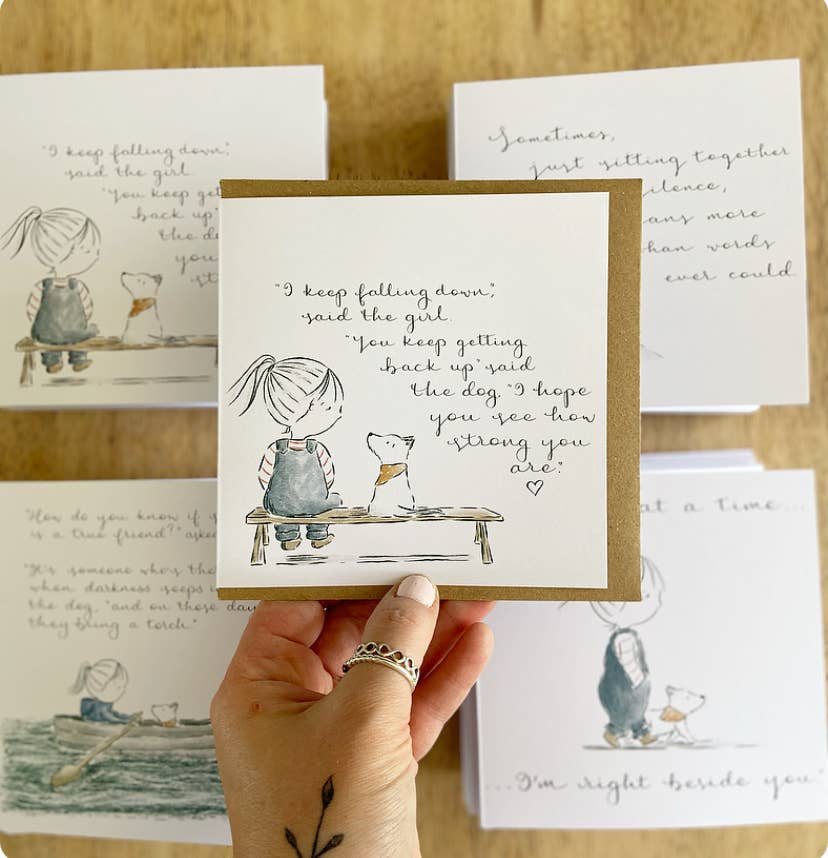 "I keep falling down",
said the girl.
"You keep get
back up"
the do
you
st
Sometimes,
just sitting together
ilence,
ans more
han words
ever could
"I keep falling down",
said the girl.
"You keep getting
back up" said
the dog. "I hope
you see how
strong you
are."
"How do you know if s
is a true friend?" aske
"It's someone who's the
when darkness seeps i
the dog, "and on those day
they bring a torch."
at a time...
...I'm right beside you"